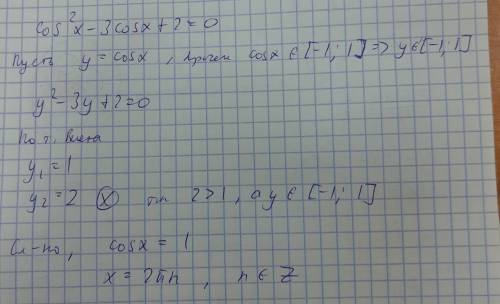 cos²x - 3cosx + 2 = 0
Пусть y = cosx, причем cosx ∈ [-1; 1] => y ∈ [-1; 1]
y² - 3y + 2 = 0
По т. Виета
y₁ = 1
y₂ = 2 ⓧ тк 2>1, а y ∈ [-1; 1]
Сл-но, cosx = 1
x = 2πn, n ∈ Z